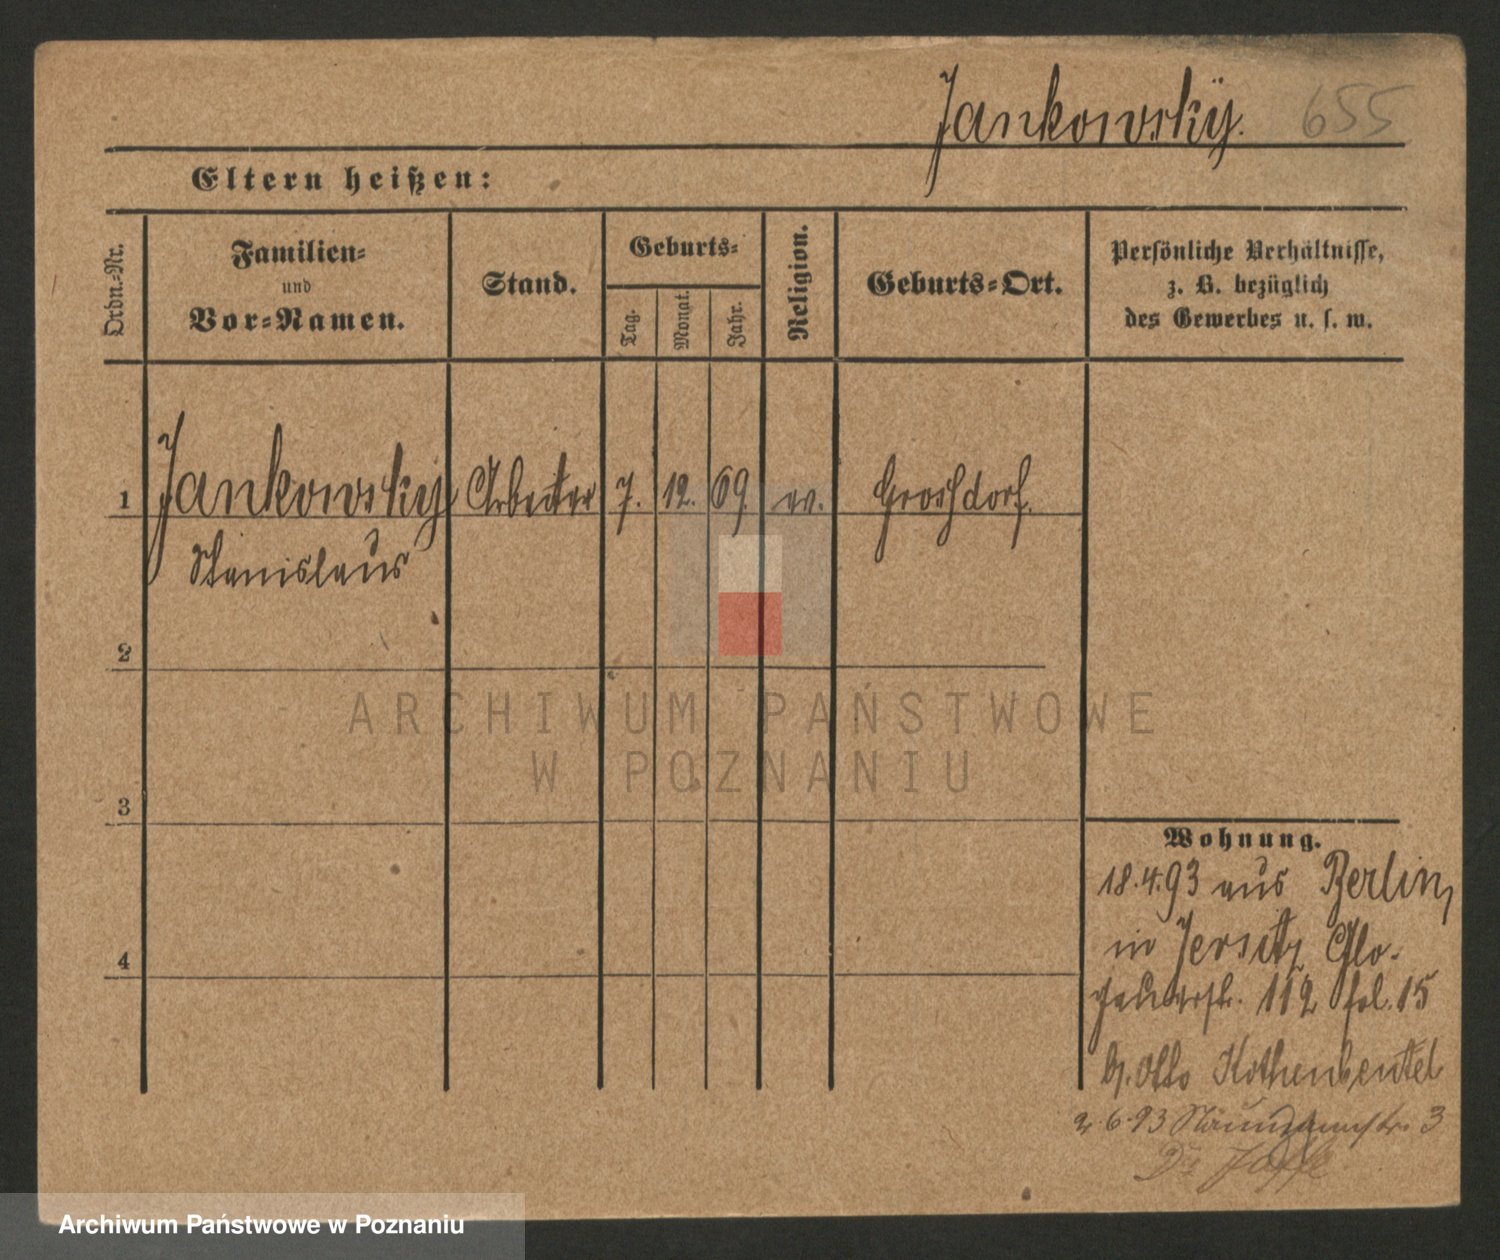 Jankowskÿ. 655
Eltern heißen:
Ordn.-Nr.
Familien-
und
Vor-Namen.
Stand.
Geburts-
Tag.
Monat.
Jahr.
Religion.
Geburts-Ort.
Persönliche Verhältnisse,
z. B. bezüglich
des Gewerbes u. s. w.
1 Jankowskÿ Arbeiter 7. 12. 69. Grossdorf.
Stanislaus
2
3
4
Wohnung.
18.4.93 aus Berlin,
in Jersitz, Glo-
gauerstr. 112 fol. 15
b. Otto Kothenbeutel
2.6.93 Naumannstr. 3
Dr Jaffe
ARCHIWUM PAŃSTWOWE
W POZNANIU
Archiwum Państwowe w Poznaniu